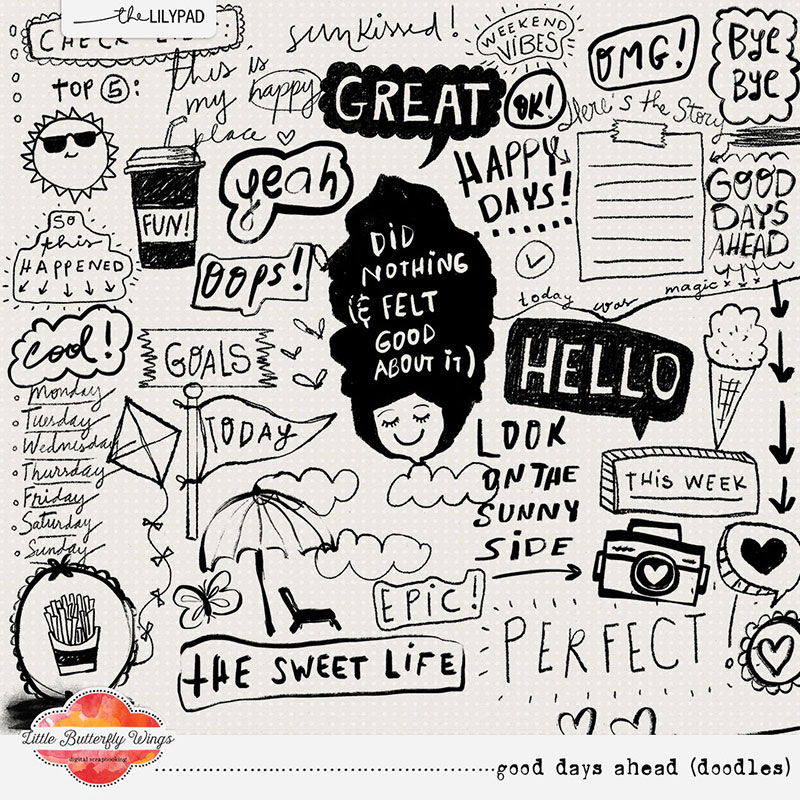 the LILYPAD
CHECK LIST:
TOP 5:
this is
my happy
place
sunkissed!
WEEKEND
VIBES
OMG!
BYE
BYE
GREAT
OK!
Here's the Story
yeah
HAPPY
DAYS!
GOOD
DAYS
AHEAD
FUN!
So
this
HAPPENED
OOPS!
DID
NOTHING
(& FELT
GOOD
ABOUT IT)
today was magic
cool!
GOALS
HELLO
Monday
Tuesday
Wednesday
Thursday
Friday
Saturday
Sunday
TODAY
LOOK
ON THE
SUNNY
SIDE
THIS WEEK
EPIC!
PERFECT!
THE SWEET LIFE
Little Butterfly Wings
digital scrapbooking
good days ahead (doodles)